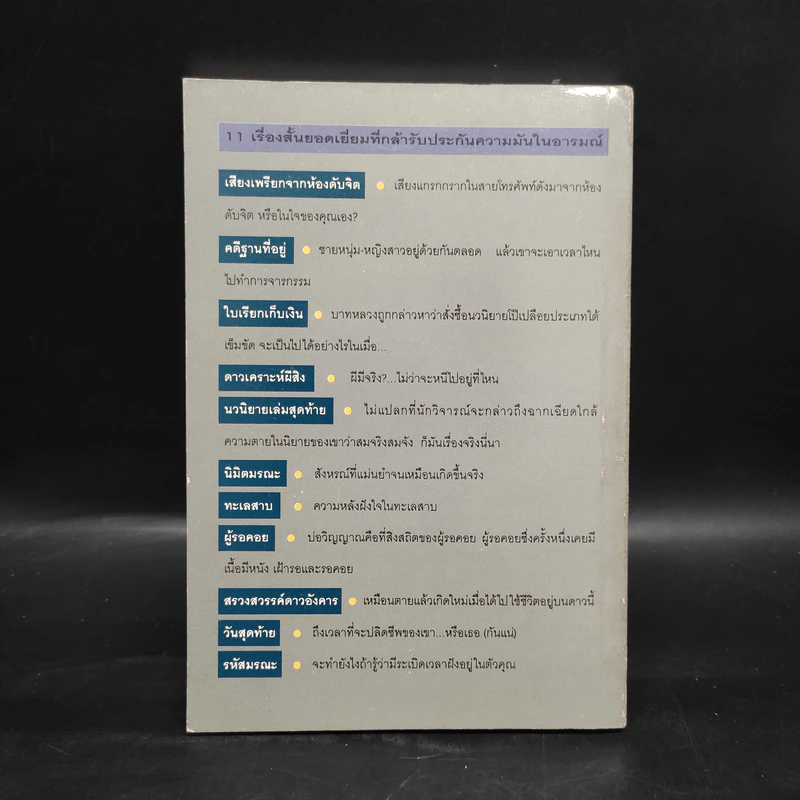 11 เรื่องสั้นยอดเยี่ยมที่กล้ารับประกันความมันในอารมณ์
เสียงเพรียกจากห้องดับจิต ● เสียงแกรกกรากในสายโทรศัพท์ดังมาจากห้อง
ดับจิต หรือในใจของคุณเอง?
คดีฐานที่อยู่ ● ชายหนุ่ม-หญิงสาวอยู่ด้วยกันตลอด แล้วเขาจะเอาเวลาไหน
ไปทำการจารกรรม
ใบเรียกเก็บเงิน ● บาทหลวงถูกกล่าวหาว่าสั่งซื้อนวนิยายโป๊เปลือยประเภทใต้
เข็มขัด จะเป็นไปได้อย่างไรในเมื่อ...
ดาวเคราะห์ผีสิง ● ผีมีจริง?...ไม่ว่าจะหนีไปอยู่ที่ไหน
นวนิยายเล่มสุดท้าย ● ไม่แปลกที่นักวิจารณ์จะกล่าวถึงฉากเฉียดใกล้
ความตายในนิยายของเขาว่าสมจริงสมจัง ก็มันเรื่องจริงนี่นา
นิมิตมรณะ ● สังหรณ์ที่แม่นยำจนเหมือนเกิดขึ้นจริง
ทะเลสาบ ● ความหลังฝังใจในทะเลสาบ
ผู้รอคอย ● บ่อวิญญาณคือที่สิงสถิตของผู้รอคอย ผู้รอคอยซึ่งครั้งหนึ่งเคยมี
เนื้อมีหนัง เฝ้ารอและรอคอย
สรวงสวรรค์ดาวอังคาร ● เหมือนตายแล้วเกิดใหม่เมื่อได้ไปใช้ชีวิตอยู่บนดาวนี้
วันสุดท้าย ● ถึงเวลาที่จะปลิดชีพของเขา...หรือเธอ (กันแน่)
รหัสมรณะ ● จะทำยังไงถ้ารู้ว่ามีระเบิดเวลาฝังอยู่ในตัวคุณ